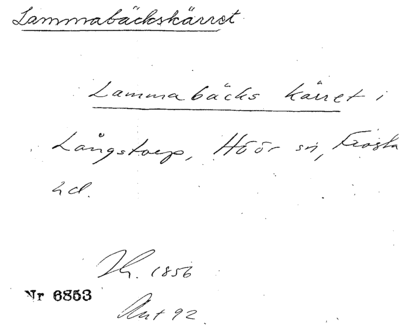 Lammabäckskärret
Lammabäcks kärret i
Långstorp, Höör sn, Frosta
hd.
Th. 1856
Nr 6853
Ant 92.